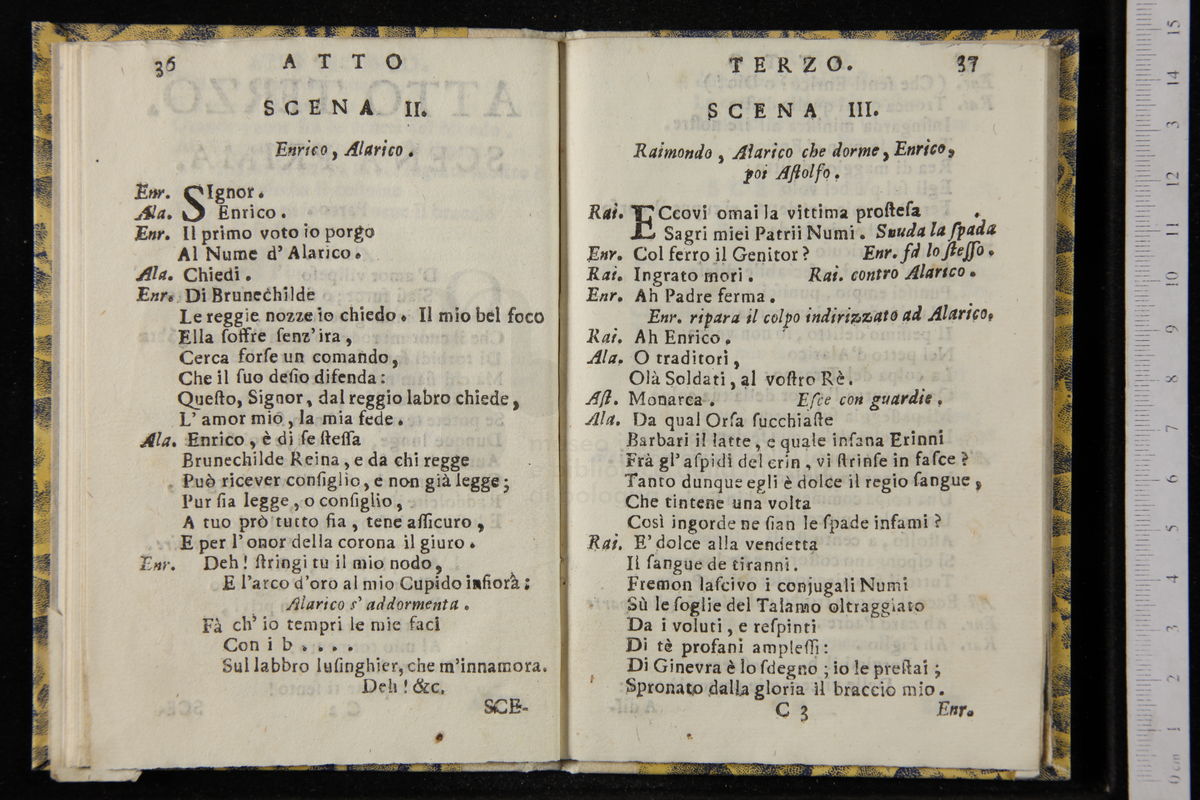 36 ATTO
SCENA II.
Enrico, Alarico.
Enr. SIgnor.
Ala. Enrico.
Enr. Il primo voto io porgo
Al Nume d' Alarico.
Ala. Chiedi.
Enr. Di Brunechilde
Le reggie nozze io chiedo. Il mio bel foco
Ella soffre senz' ira,
Cerca forse un comando,
Che il suo desio difenda:
Questo, Signor, dal reggio labro chiede,
L' amor mio, la mia fede.
Ala. Enrico, è di se stessa
Brunechilde Reina, e da chi regge
Può ricever consiglio, e non già legge;
Pur sia legge, o consiglio,
A tuo prò tutto sia, tene assicuro,
E per l' onor della corona il giuro.
Enr. Deh! stringi tu il mio nodo,
E l'arco d'oro al mio Cupido infiora:
Alarico s' addormenta.
Fà ch' io tempri le mie faci
Con i b . . . .
Sul labbro lusinghier, che m'innamora.
Deh! &c.
SCE-
TERZO. 37
SCENA III.
Raimondo, Alarico che dorme, Enrico,
poi Astolfo.
Rai. ECcovi omai la vittima prostesa
Sagri miei Patrii Numi. Snuda la spada
Enr. Col ferro il Genitor? Enr. fà lo stesso.
Rai. Ingrato mori. Rai. contro Alarico.
Enr. Ah Padre ferma.
Enr. ripara il colpo indirizzato ad Alarico.
Rai. Ah Enrico.
Ala. O traditori,
Olà Soldati, al vostro Rè.
Ast. Monarca. Esce con guardie.
Ala. Da qual Orsa succhiaste
Barbari il latte, e quale insana Erinni
Frà gl' aspidi del crin, vi strinse in fasce?
Tanto dunque egli è dolce il regio sangue,
Che tintene una volta
Così ingorde ne sian le spade infami?
Rai. E' dolce alla vendetta
Il sangue de tiranni.
Fremon lascivo i conjugali Numi
Sù le soglie del Talamo oltraggiato
Da i voluti, e respinti
Di tè profani amplessi:
Di Ginevra è lo sdegno; io le prestai;
Spronato dalla gloria il braccio mio.
C 3 Enr.